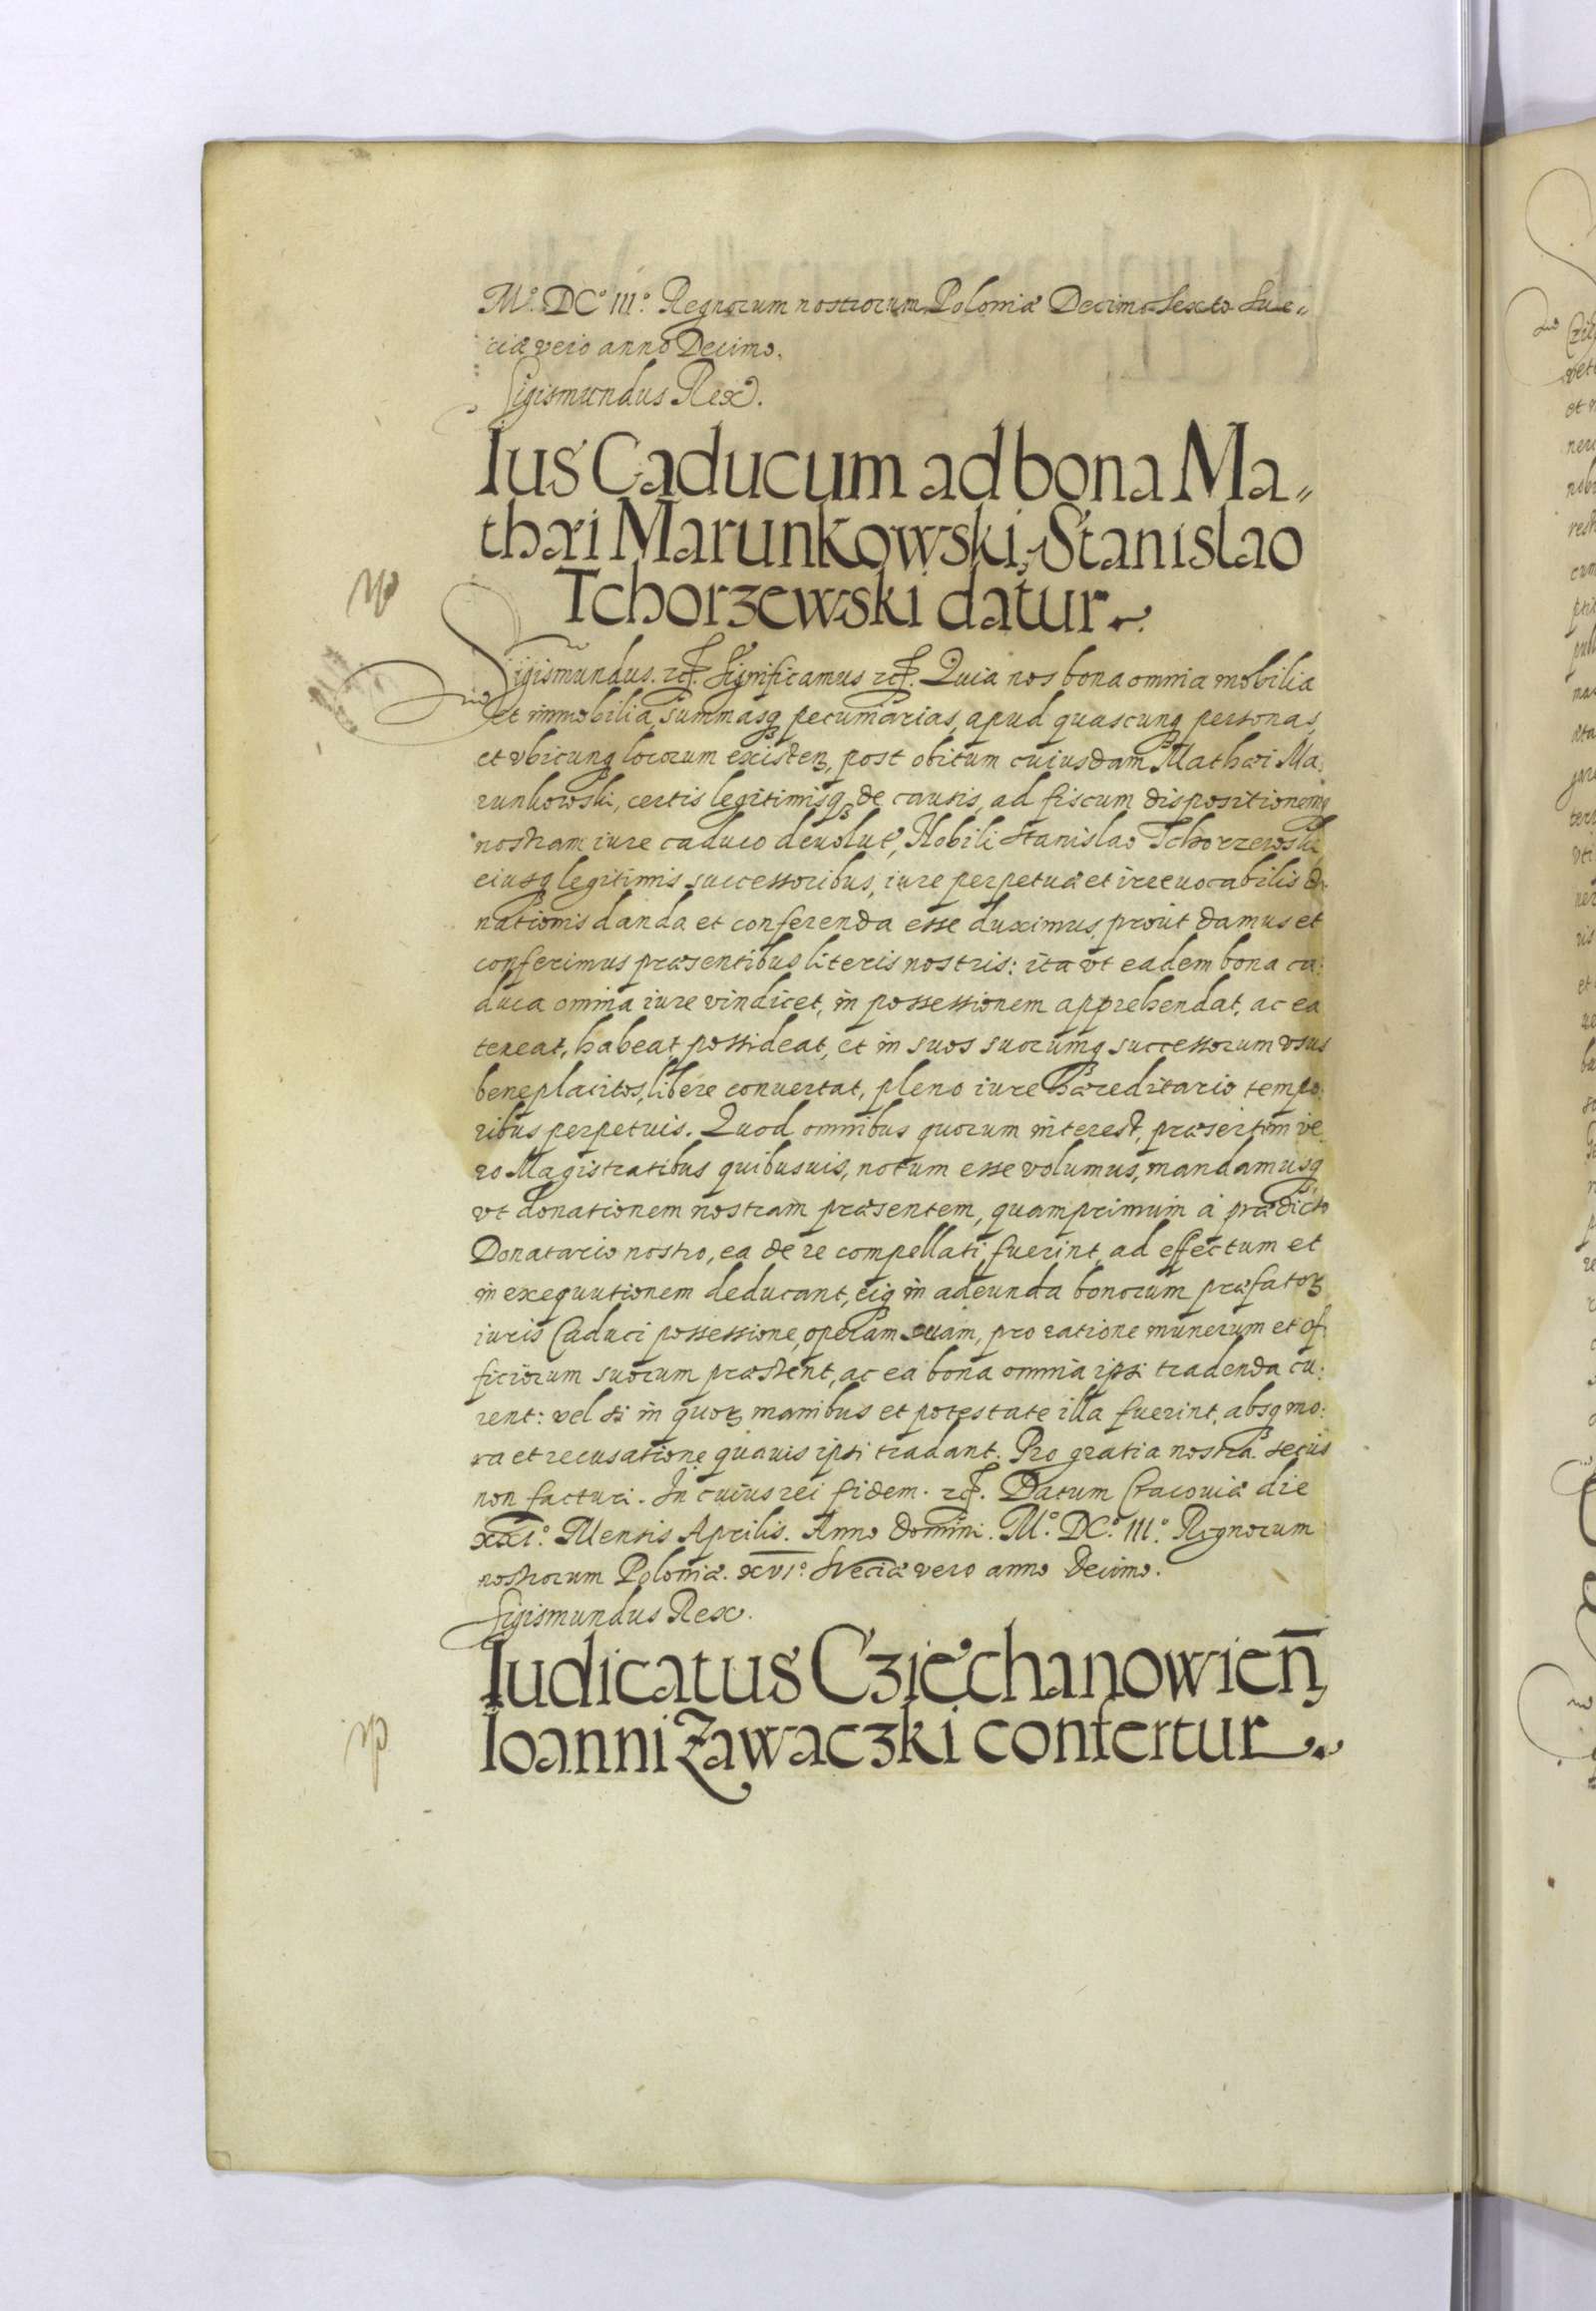 M.º DC.º III.º Regnorum nostrorum Poloniæ Decimo Sexto Sue„
ciæ vero anno Decimo.
Sigismundus Rex.
Ius Caducum ad bona Ma„
thæi Marunkowski, Stanislao
Tchorzewski datur.
Sigismundus. etc. Significamus etc. Quia nos bona omnia mobilia
et immobilia, summasq pecuniarias, apud quascunq personas,
et vbicunq locorum existen, post obitum cuiusdam Mathæi Ma:
runkowski, certis legitimisq de causis, ad fiscum dispositionemq
nostram iure caduco deuolut, Nobili Stanislao Tchorzewski
eiusq legitimis successoribus, iure perpetuæ et irreuocabilis do
nationis danda et conferenda esse duximus, prout damus et
conferimus præsentibus literis nostris: ita vt eadem bona ca:
duca omnia iure vindicet, in possessionem apprehendat, ac ea
teneat, habeat, possideat, et in suos suorumq successorum vsus
beneplacitos, libere conuertat, pleno iure hæreditario tempo:
ribus perpetuis. Quod omnibus quorum interest, præsertim ve
ro Magistratibus quibusuis, notum esse volumus, mandamusq
vt donationem nostram præsentem, quamprimum à prædicto
Donatario nostro, ea de re compellati fuerint, ad effectum et
in exequutionem deducant, eiq in adeunda bonorum præfatoꝝ
iuris Caduci possessione, operam suam, pro ratione munerum et of
ficiorum suorum præstent, ac ea bona omnia ipsi tradenda cu:
rent: vel si in quoꝝ manibus et potestate illa fuerint, absq mo:
ra et recusatione quauis ipsi tradant. Pro gratia nostra secus
non facturi. In cuius rei fidem. etc. Datum Cracouiæ die
xxi.º Mensis Aprilis. Anno Domini. M.º DC.º III.º Regnorum
nostrorum Poloniæ. xvi.º Sveciæ vero anno Decimo.
Sigismundus Rex.
Iudicatus Cziechanowien
Ioanni Zawaczki confertur.